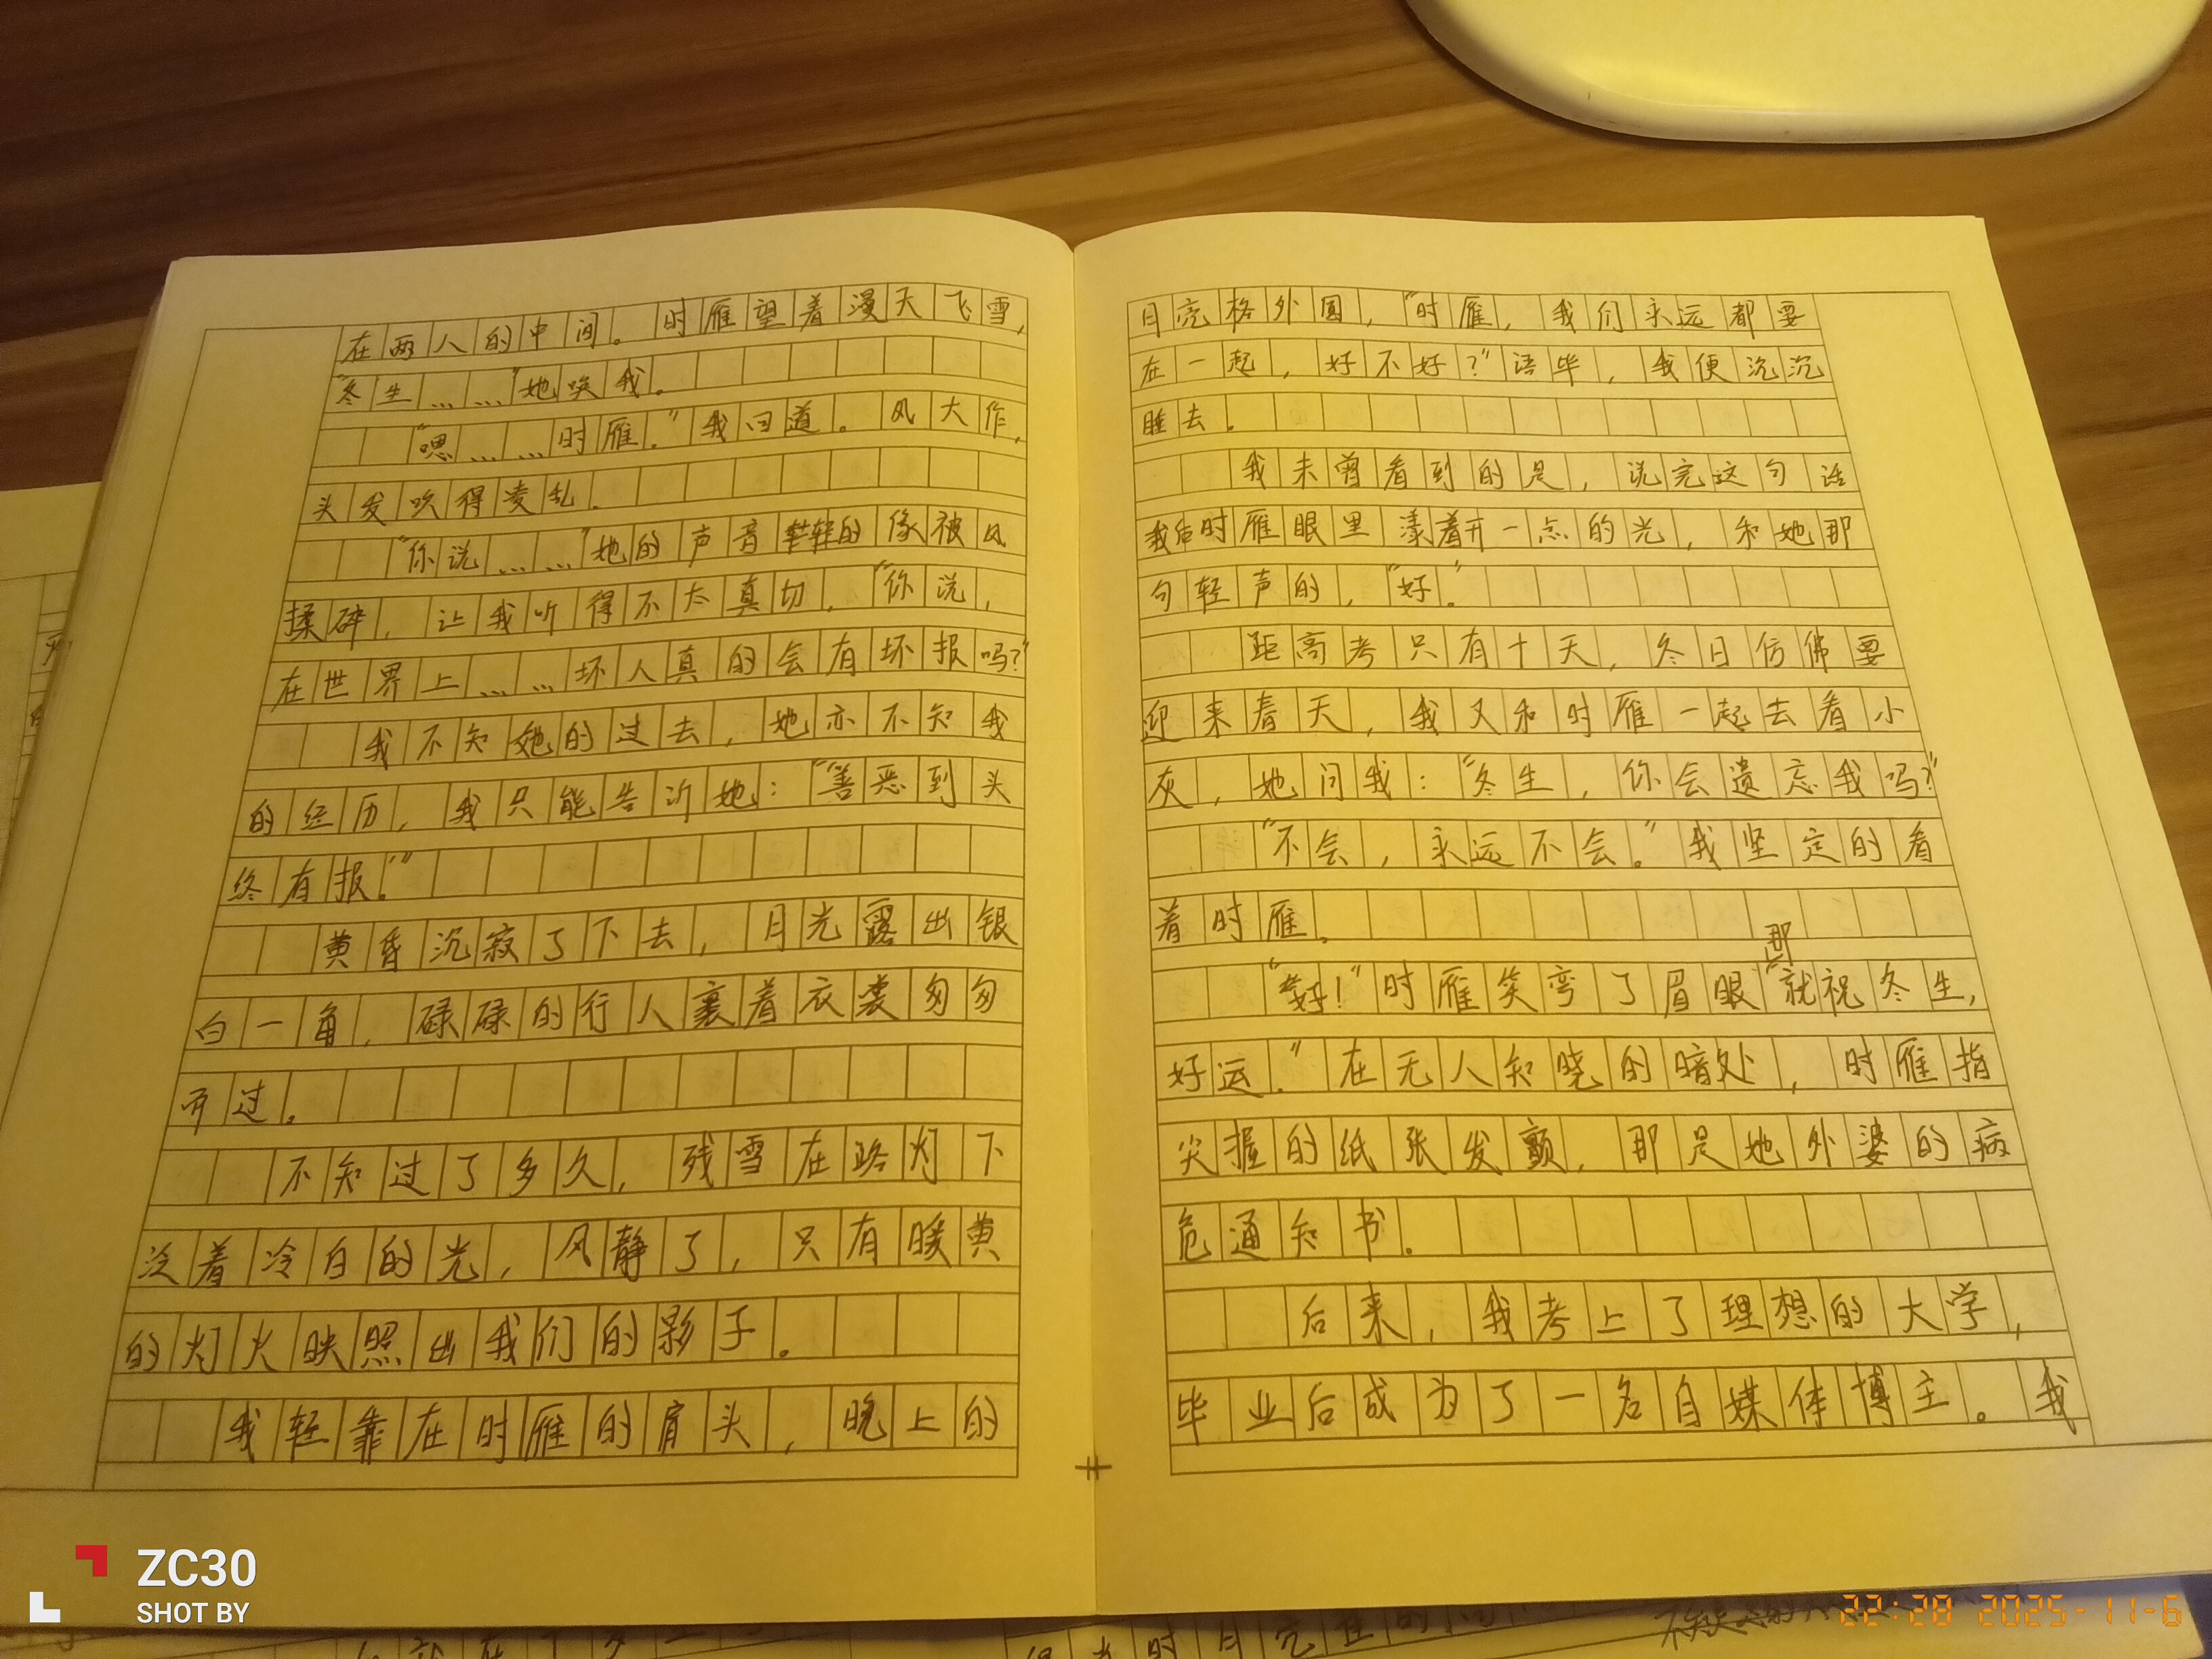 在两人的中间。时雁望着漫天飞雪,
“冬生……”她唤我。
“嗯……时雁.”我回道。风大作,
头发吹得凌乱.
“你说……”她的声音轻的像被风
揉碎,让我听得不太真切,“你说,
在世界上……坏人真的会有坏报吗?”
我不知她的过去,她亦不知我
的经历,我只能告诉她:“善恶到头
终有报.”
黄昏沉寂了下去,月光露出银
白一角,碌碌的行人裹着衣袭匆匆
而过。
不知过了多久,残雪在路灯下
泛着冷白的光,风静了,只有暖黄
的灯火映照出我们的影子。
我轻靠在时雁的肩头,晚上的
月亮格外圆,“时雁,我们永远都要
在一起,好不好?”语毕,我便沉沉
睡去.
我未曾看到的是,说完这句话
我后时雁眼里漾着开一点的光,和她那
句轻声的,“好.”
距高考只有十天,冬日仿佛要
迎来春天,我又和时雁一起去看小
灰,她问我:“冬生,你会遗忘我吗?”
“不会,永远不会。”我坚定的看
着时雁.
“好!”时雁笑弯了眉眼“那就祝冬生,
好运.”在无人知晓的暗处,时雁指
尖握的纸张发颤,那是她外婆的病
危通知书.
后来,我考上了理想的大学,
毕业后成为了一名自媒体博主。我
ZC30
SHOT BY
22:28 2025-11-6